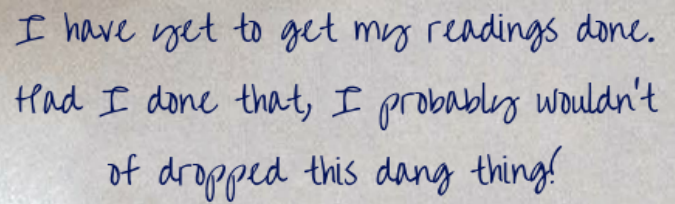 I have yet to get my readings done.
Had I done that, I probably wouldn't
of dropped this dang thing!